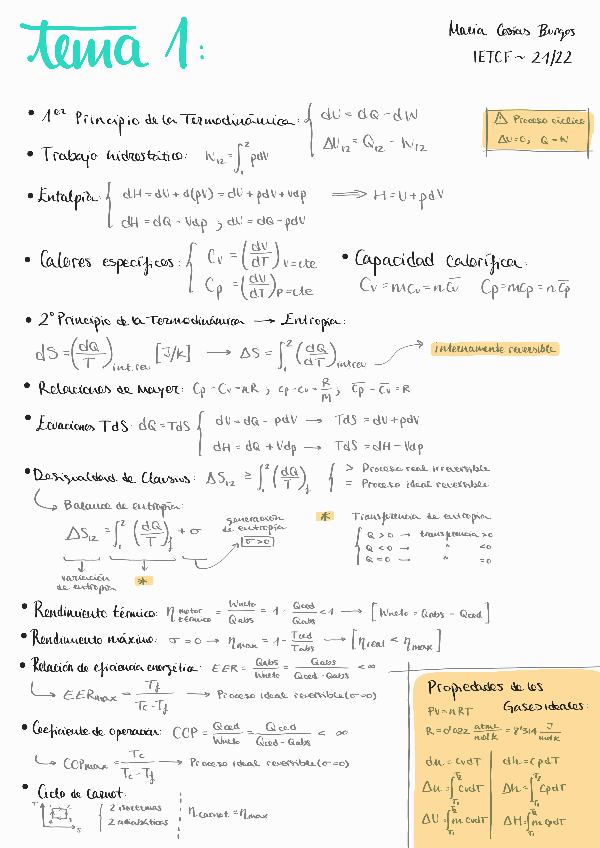 tema 1:
María Cosías Burgos
IETCF ~ 21/22
• 1er Principio de la Termodinámica: { dU = dQ - dW
ΔU12 = Q12 - W12
⚠ Proceso cíclico
ΔU=0; Q=W
• Trabajo hidrostático: W12 = ∫₁² pdV
• Entalpía: { dH = dU + d(pV) = dU + pdV + Vdp ⟹ H = U + pdV
dH = dQ - Vdp ; dU = dQ - pdV
• Calores específicos: { Cv = (dU/dT)V=cte
Cp = (dU/dT)P=cte
• Capacidad calorífica:
Cv = mcv = nc̅v Cp = mcp = nc̅p
• 2º Principio de la Termodinámica → Entropía:
dS = (dQ/T)int.rev [J/K] → ΔS = ∫₁² (dQ/dT)intrev → internamente reversible
• Relaciones de Mayer: Cp - Cv = nR ; cp - cv = R/M ; c̅p - c̅v = R
• Ecuaciones TdS: dQ = TdS { dU = dQ - pdV → TdS = dU + pdV
dH = dQ + Vdp → TdS = dH - Vdp
• Desigualdad de Clausius: ΔS12 ≥ ∫₁² (dQ/T)f { > Proceso real irreversible
= Proceso ideal reversible
↳ Balance de entropía:
ΔS12 = ∫₁² (dQ/T)f + σ
generación de entropía
σ>0
variación de entropía
*
* Transferencia de entropía
{ Q > 0 → transferencia >0
Q < 0 → " <0
Q = 0 → " =0
• Rendimiento térmico: η motor térmico = Wneto/Qabs = 1 - Qced/Qabs < 1 → [Wneto = Qabs - Qced]
• Rendimiento máximo: σ = 0 → ηmax = 1 - Tced/Tabs → [ηreal < ηmax]
• Relación de eficiencia energética: EER = Qabs/Wneto = Qabs/Qced-Qabs < ∞
↳ EERmax = Tf/Tc-Tf → Proceso ideal reversible (σ=0)
• Coeficiente de operación: COP = Qced/Wneto = Qced/Qced-Qabs < ∞
↳ COPmax = Tc/Tc-Tf → Proceso ideal reversible (σ=0)
• Ciclo de Carnot:
T
S
{ 2 isotermas
2 adiabáticas
ηcarnot = ηmax
Propiedades de los
Gases ideales:
PV = nRT
R = 0'022 atm·L/mol·K = 8'314 J/mol·K
du = cvdT dh = cpdT
Δu = ∫T1T2 cvdT Δh = ∫T1T2 cpdT
ΔU = ∫T1T2 mcvdT ΔH = ∫T1T2 mcpdT